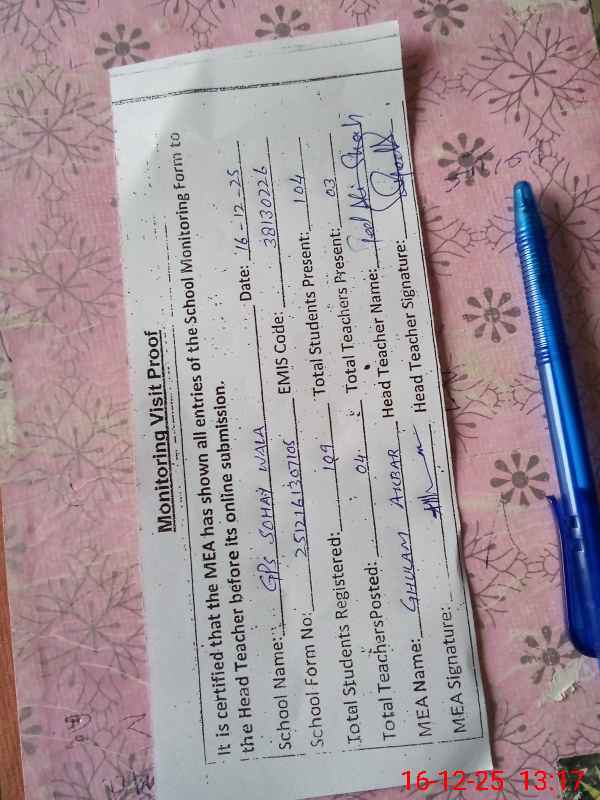 Monitoring Visit Proof
It is certified that the MEA has shown all entries of the School Monitoring Form to
the Head Teacher before its online submission.
School Name: GPS SOHAY WALA Date: 16-12-25
School Form No: 2512161307105 EMIS Code: 38130226
Total Students Registered: 109 Total Students Present: 104
Total TeachersPosted: 04 Total Teachers Present: 03
MEA Name: GHULAM AKBAR Head Teacher Name: Ali Shah
MEA Signature: Head Teacher Signature:
16-12-25 13:17